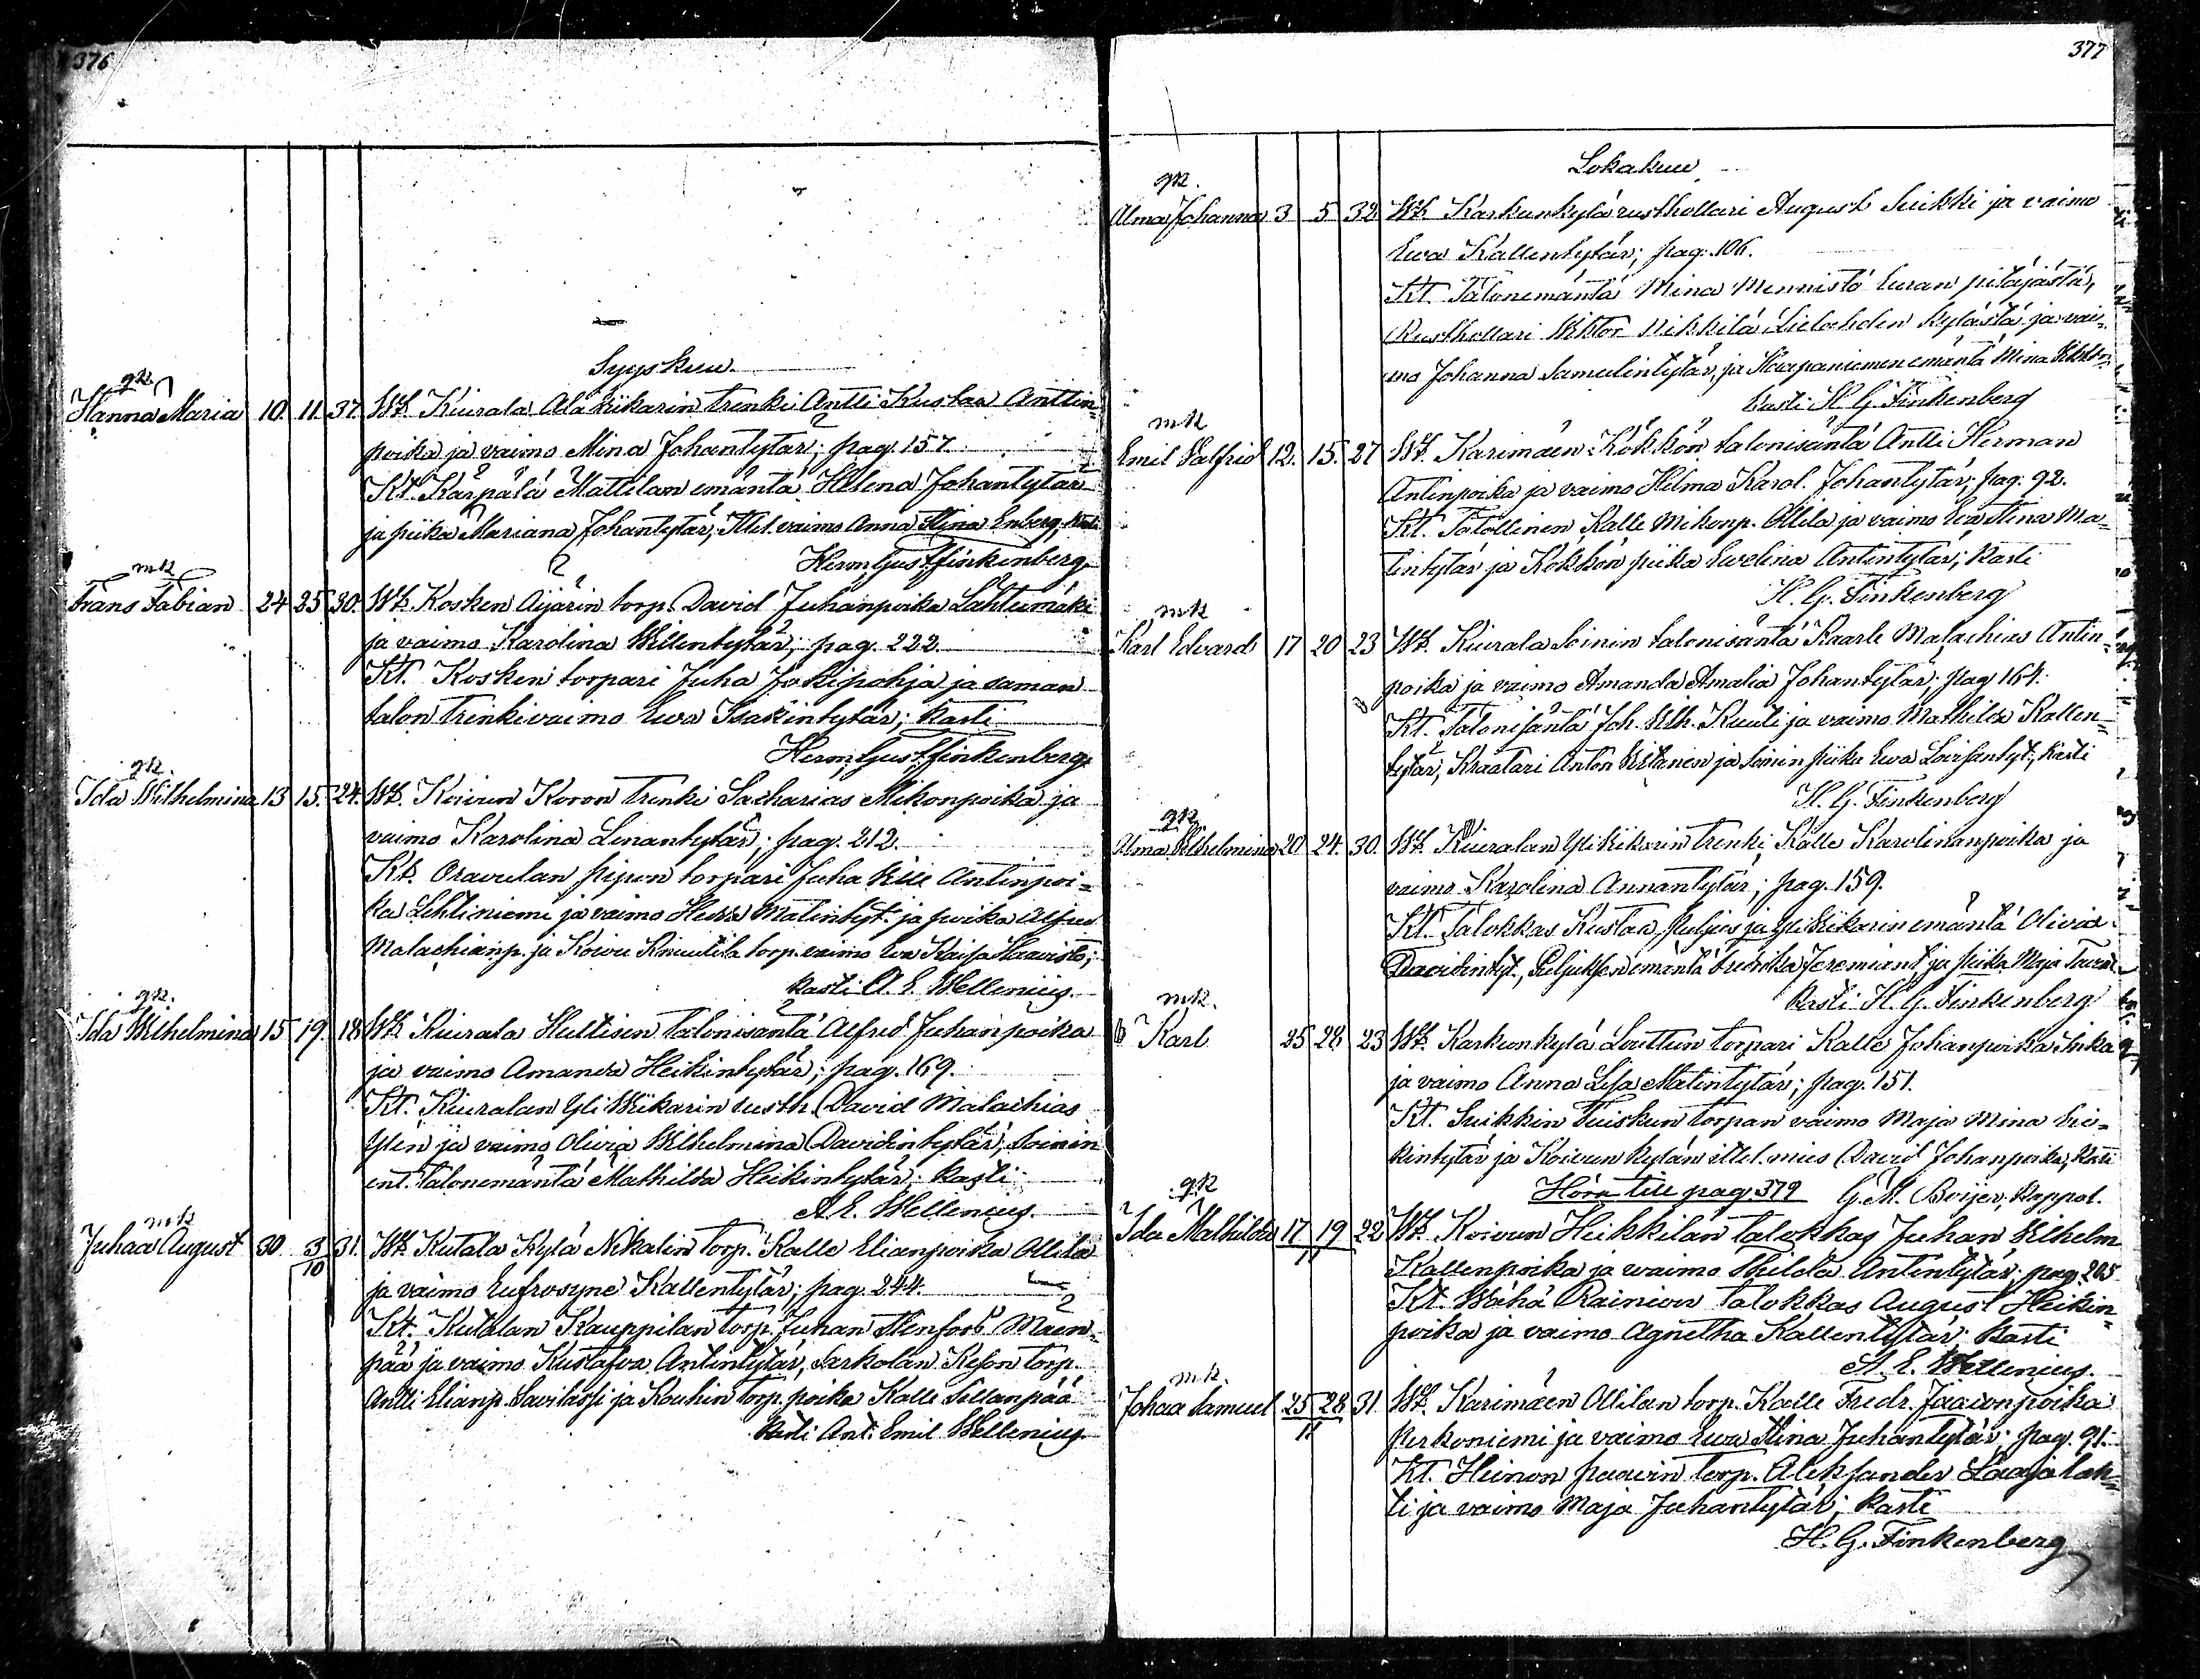 376
Syyskuu.
gk.
Hanna Maria 10. 11. 37. Wt. Kiurala Ala kiikarin trenki Antti Kustaa Anttin-
poika ja vaimo Mina Johantytär; pag. 157.
Kt. Kärpälä Mattilan emäntä Helena Johantytär
ja piika Mariana Johantytär, Itel. vaimo Anna Stina Enberg,
Herm. Gust. Finkenberg.
mk
Frans Fabian 24 25 30. Wt. Kosken Äijärin torp. David Juhanpoika Lähtumäki
ja vaimo Karolina Willentytär; pag. 222.
Kt. Kosken torpari Juha Jokipohja ja saman
talon trenkivaimo Ewa Isakintytär; kasti
Herm. Gust. Finkenberg.
gk.
Ida Wilhelmina 13 15. 24. Wt. Koivun Koron trenki Sacharias Mikonpoika ja
vaimo Karolina Lenantytär; pag. 212.
Kt. Oravulan pipun torpari Juha Antinpoi=
ka Lehtiniemi ja vaimo Hedda Matintyt. ja poika Alfred
Malachianp. ja Koivu Knuutila torp. vaimo Eva Kaisa Haavisto;
kasti A. E. Wellenius.
gk.
Ida Wilhelmina 15 19. 18 Wt. Kiurala Huttisen talonisäntä Alfred Juhanpoika
ja vaimo Amanda Heikintytär; pag. 169.
Kt. Kiuralan Yli Kiikarin rusth. David Malachias
Ylén ja vaimo Olivia Wilhelmina Davidintytär, Soinin
ent. talonemäntä Mathilda Heikintytär; kasti
A. E. Wellenius.
mk
Juhaa August 30. 3/10 31. Wt. Kutala Kylä Nikalin torp. Kalle Elianpoika Ollila
ja vaimo Eufrosyne Kallentytär; pag. 244.
Kt. Kutalan Kauppilan torp. Juhan Stenfors Mäen-
pää ja vaimo Kustafva Antintytär, Sarkolan Keson torp.
Antti Elianp. Savilahti ja Kouhin torp. poika Kalle Sillanpää
kasti Ant. Emil Wellenius.
377
Lokakuu
gk.
Alma Johanna 3 5 32 Wt. Karkunkylä rusthollari August Suikki ja vaimo
Ewa Kallentytär; pag. 106.
Kt. Talonemäntä Mina Mennistö Euran pitäjästä,
Rusthollari Wiktor Nikkilä Lielahden kylästä ja vai-
mo Johanna Samulintytär, ja Haapaniemen emäntä Mina
kasti H. G. Finkenberg
mk
Emil Valfrid 12. 15. 27 Wt. Karimäen Kökkön talonisäntä Antti Herman
Antinpoika ja vaimo Helma Karol. Johantytär; pag. 92.
Kt. Talollinen Kalle Mikonp. Ollila ja vaimo Eva Stina Ma=
tintytär ja Kökkön piika Ewelina Antintytär; kasti
H. G. Finkenberg
mk
Karl Edvard 17 20 23 Wt. Kiurala Soinin talonisäntä Kaarle Malachias Antin-
poika ja vaimo Amanda Amalia Johantytär; pag 164.
Kt. Talonisäntä Joh. Wilh. Knuti ja vaimo Mathilda Kallen-
tytär, Kraatari Anton ja Soinin piika Ewa Lovisantyt; kasti
H. G. Finkenberg
gk.
Alma Wilhelmina 20 24. 30. Wt. Kiuralan Yli Kiikarin trenki Kalle Karolinanpoika ja
vaimo Karolina Annantytär; pag. 159.
Kt. Talokkas Kustaa Puljus ja Yli Kiikarin emäntä Olivia
Davidintyt., emäntä Fredrika Jeremiant. ja piika Maja
kasti H. G. Finkenberg
mk.
Karl 25 28 23 Wt. Karkunkylä Louttun torpari Kalle Johanpoika Inka
ja vaimo Anna Lisa Matintytär; pag. 151.
Kt. Suikkin Tuiskun torpan vaimo Maja Mina Eri=
kintytär ja Koivun kylän ittel. mies David Johanpoika, kasti
Hörn till pag 379 G. M. Boijer, Kappal.
gk
Ida Mathilda 17 19/11 22 Wt. Koivun Heikkilän talokkas Juhan Vilhelm
Kallenpoika ja vaimo Thilda Antintytär; pag. 205
Kt. Wähä Rainion talokkas August Heikin-
poika ja vaimo Agnetha Kallentytär: kasti
A. E. Wellenius.
mk.
Johaa Samuel 25 28/11 31 Wt. Karimäen Ollilan torp. Kalle Fredr. Jaaconpoika
Perkoniemi ja vaimo Ewa Stina Juhantytär; pag. 91.
Kt. Heinon paavin torp. Aleksander Laajalah-
ti ja vaimo Maja Juhantytär; kasti
H. G. Finkenberg